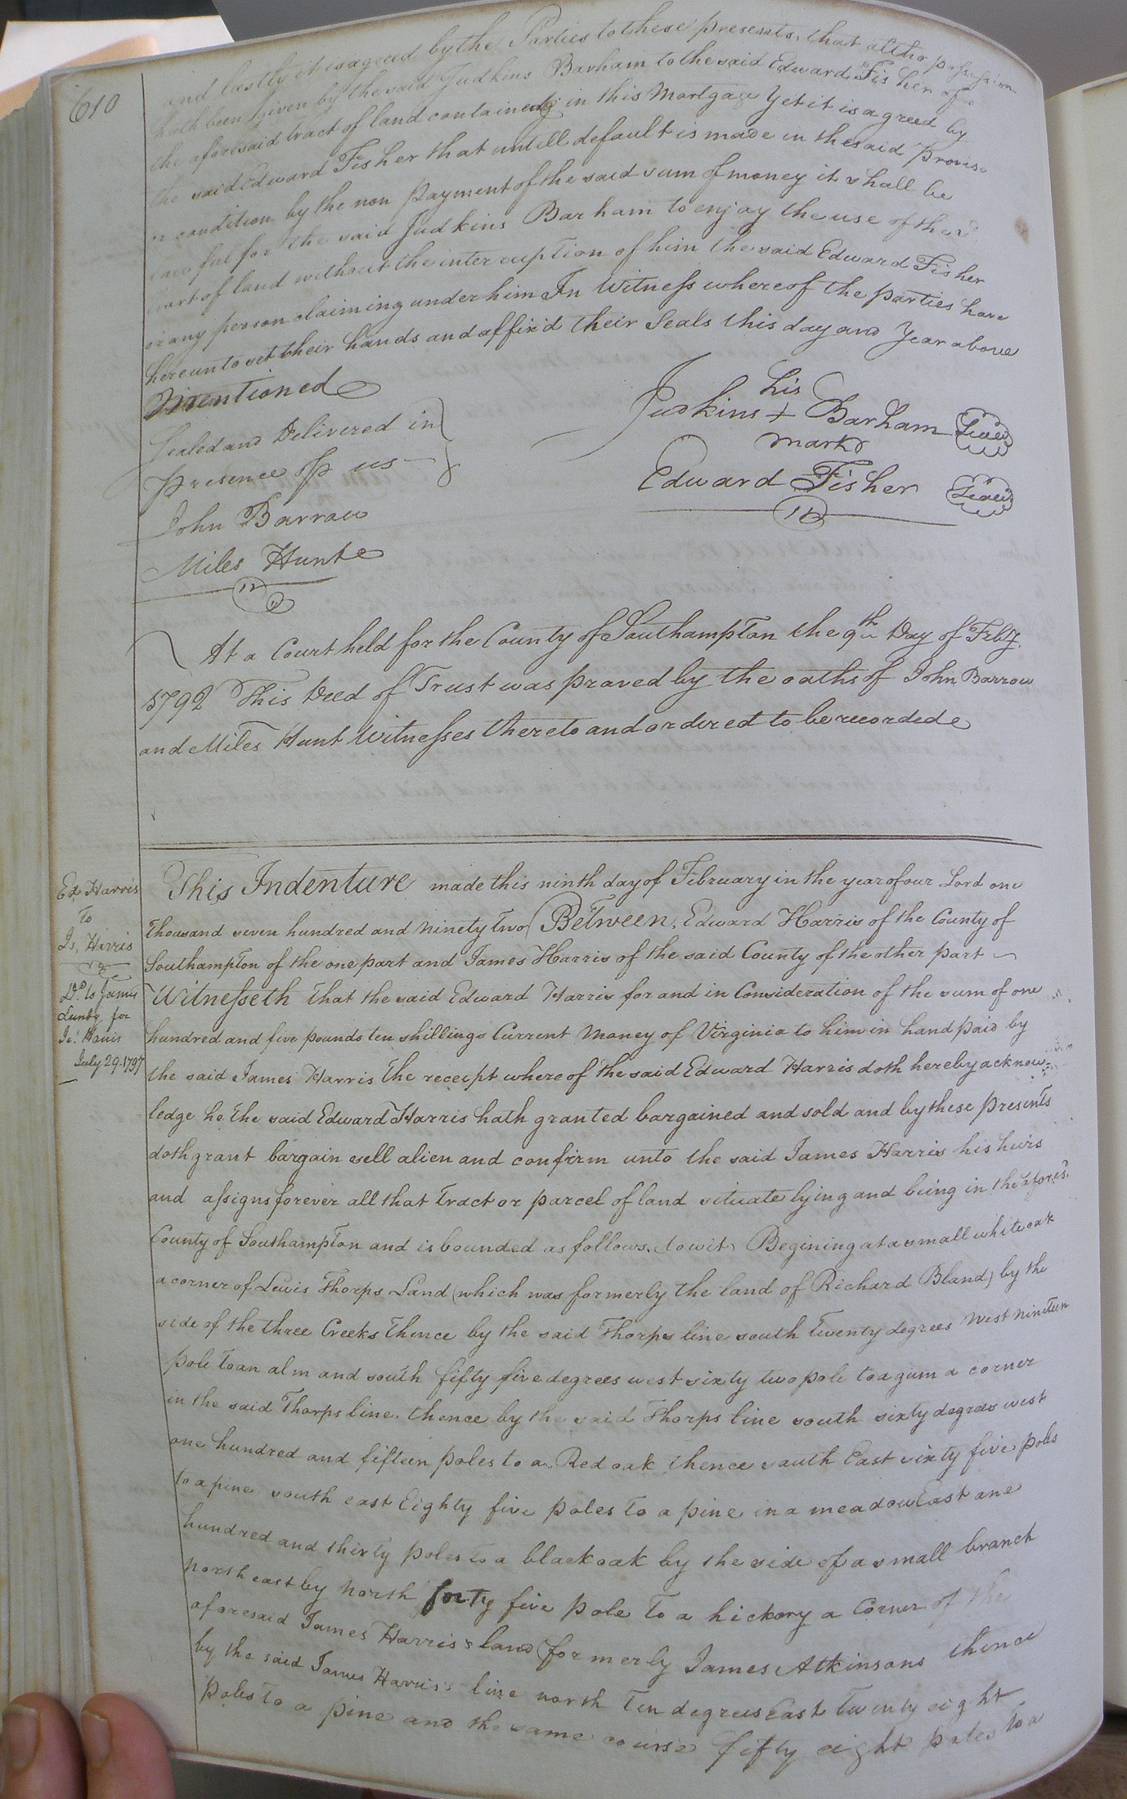 610
and lastly it is agreed by the Parties to these presents, that altho possession
hath been given by the said Judkins Barham to the said Edward Fisher of
the aforesaid tract of land contained in this Mortgage Yet it is agreed by
the said Edward Fisher that untill default is made in the said Proviso
or condition by the non Payment of the said sum of money it shall be
lawful for the said Judkins Barham to enjoy the use of the sd
part of land without the interruption of him the said Edward Fisher
or any person claiming under him In Witness whereof the parties have
hereunto set their hands and affix'd their Seals this day and Year above
Mentioned
Sealed and Delivered in
presence of us
John Barrow
Miles Hunt
his
Judkins + Barham Seal
mark
Edward Fisher Seal
At a Court held for the County of Southampton the 9th Day of Feby
1792 This Deed of Trust was proved by the oaths of John Barrow
and Miles Hunt Witnesses thereto and ordered to be recorded
Ed. Harris
To
Js. Harris
Dd. to James
for
Js. Harris
July 29. 1797
This Indenture made this ninth day of February in the year of our Lord one
thousand seven hundred and ninety two Between Edward Harris of the County of
Southampton of the one part and James Harris of the said County of the other part
Witnesseth that the said Edward Harris for and in Consideration of the sum of one
hundred and five pounds ten shillings Current Money of Virginia to him in hand paid by
the said James Harris the receipt whereof the said Edward Harris doth hereby acknow=
ledge he the said Edward Harris hath granted bargained and sold and by these presents
doth grant bargain sell alien and confirm unto the said James Harris his heirs
and assigns forever all that tract or parcel of land situate lying and being in the aforesd
County of Southampton and is bounded as follows, to wit, Begining at a small white oak
a corner of Lewis Thorps Land (which was formerly the land of Richard Bland) by the
side of the three Creeks thence by the said Thorps line south twenty degrees West nineteen
pole to an alm and south fifty five degrees west sixty two pole to a gum a corner
in the said Thorps line. thence by the said Thorps line south sixty degrees west
one hundred and fifteen poles to a Red oak thence south East sixty five poles
to a pine south east Eighty five poles to a pine in a meadow East one
hundred and thirty poles to a black oak by the side of a small branch
north east by north forty five pole to a hickory a Corner of the
aforesaid James Harris's land formerly James Atkinsons thence
by the said James Harris's line north ten degrees East twenty eight
Poles to a pine and the same course fifty eight poles to a